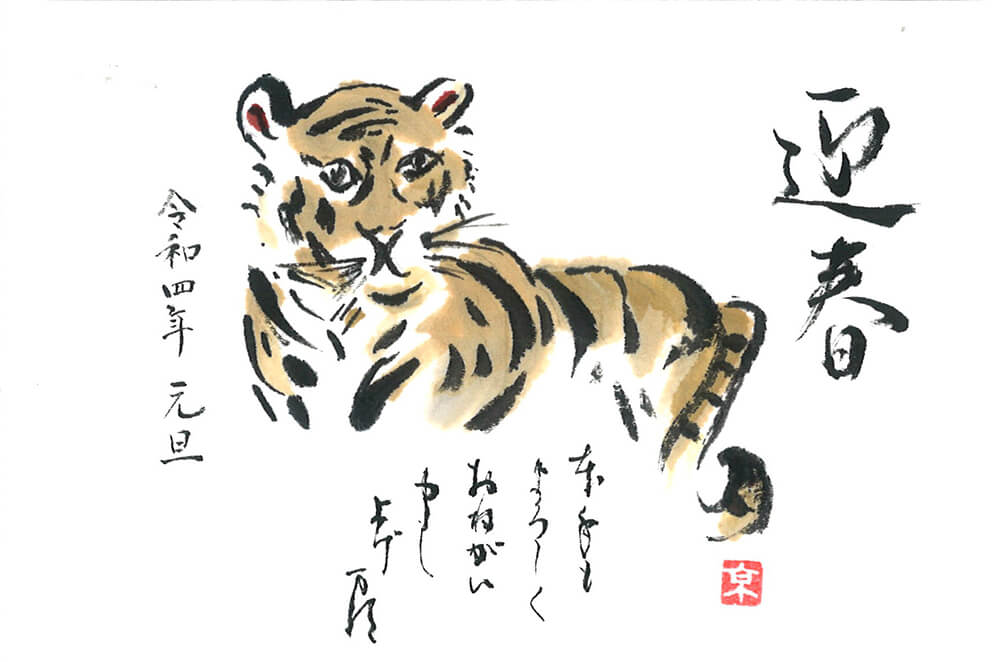 迎春
本年も
よろしく
おねがい
申し
上げ
ます
令和四年 元旦
京